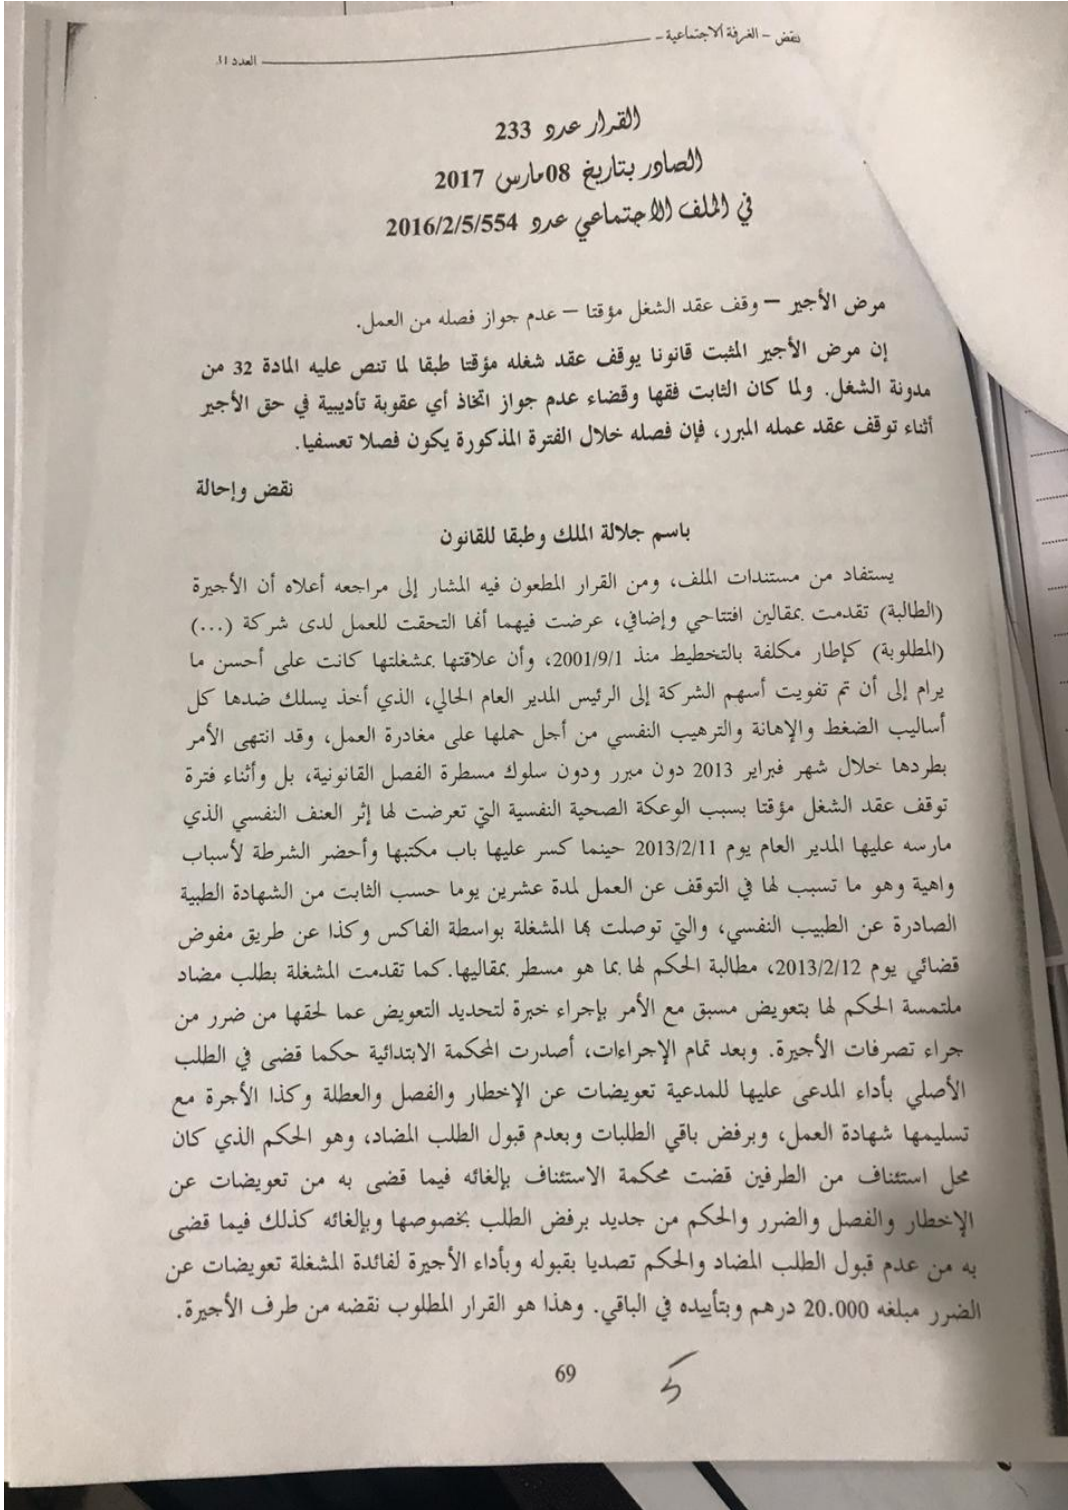 نقض - الغرفة الاجتماعية -
العدد 31
القرار عدد 233
الصادر بتاريخ 08 مارس 2017
في الملف الاجتماعي عدد 2016/2/5/554
مرض الأجير – وقف عقد الشغل مؤقتا – عدم جواز فصله من العمل.
إن مرض الأجير المثبت قانونا يوقف عقد شغله مؤقتا طبقا لما تنص عليه المادة 32 من
مدونة الشغل. ولما كان الثابت فقها وقضاء عدم جواز اتخاذ أي عقوبة تأديبية في حق الأجير
أثناء توقف عقد عمله المبرر، فإن فصله خلال الفترة المذكورة يكون فصلا تعسفيا.
نقض وإحالة
باسم جلالة الملك وطبقا للقانون
يستفاد من مستندات الملف، ومن القرار المطعون فيه المشار إلى مراجعه أعلاه أن الأجيرة
(الطالبة) تقدمت بمقالين افتتاحي وإضافي، عرضت فيهما أنها التحقت للعمل لدى شركة (...)
(المطلوبة) كإطار مكلفة بالتخطيط منذ 2001/9/1، وأن علاقتها بمشغلتها كانت على أحسن ما
يرام إلى أن تم تفويت أسهم الشركة إلى الرئيس المدير العام الحالي، الذي أخذ يسلك ضدها كل
أساليب الضغط والإهانة والترهيب النفسي من أجل حملها على مغادرة العمل، وقد انتهى الأمر
بطردها خلال شهر فبراير 2013 دون مبرر ودون سلوك مسطرة الفصل القانونية، بل وأثناء فترة
توقف عقد الشغل مؤقتا بسبب الوعكة الصحية النفسية التي تعرضت لها إثر العنف النفسي الذي
مارسه عليها المدير العام يوم 2013/2/11 حينما كسر عليها باب مكتبها وأحضر الشرطة لأسباب
واهية وهو ما تسبب لها في التوقف عن العمل لمدة عشرين يوما حسب الثابت من الشهادة الطبية
الصادرة عن الطبيب النفسي، والتي توصلت بها المشغلة بواسطة الفاكس وكذا عن طريق مفوض
قضائي يوم 2013/2/12، مطالبة الحكم لها بما هو مسطر بمقاليها. كما تقدمت المشغلة بطلب مضاد
ملتمسة الحكم لها بتعويض مسبق مع الأمر بإجراء خبرة لتحديد التعويض عما لحقها من ضرر من
جراء تصرفات الأجيرة. وبعد تمام الإجراءات، أصدرت المحكمة الابتدائية حكما قضى في الطلب
الأصلي بأداء المدعى عليها للمدعية تعويضات عن الإخطار والفصل والعطلة وكذا الأجرة مع
تسليمها شهادة العمل، وبرفض باقي الطلبات وبعدم قبول الطلب المضاد، وهو الحكم الذي كان
محل استئناف من الطرفين قضت محكمة الاستئناف بإلغائه فيما قضى به من تعويضات عن
الإخطار والفصل والضرر والحكم من جديد برفض الطلب بخصوصها وبإلغائه كذلك فيما قضى
به من عدم قبول الطلب المضاد والحكم تصديا بقبوله وبأداء الأجيرة لفائدة المشغلة تعويضات عن
الضرر مبلغه 20.000 درهم وبتأييده في الباقي. وهذا هو القرار المطلوب نقضه من طرف الأجيرة.
69